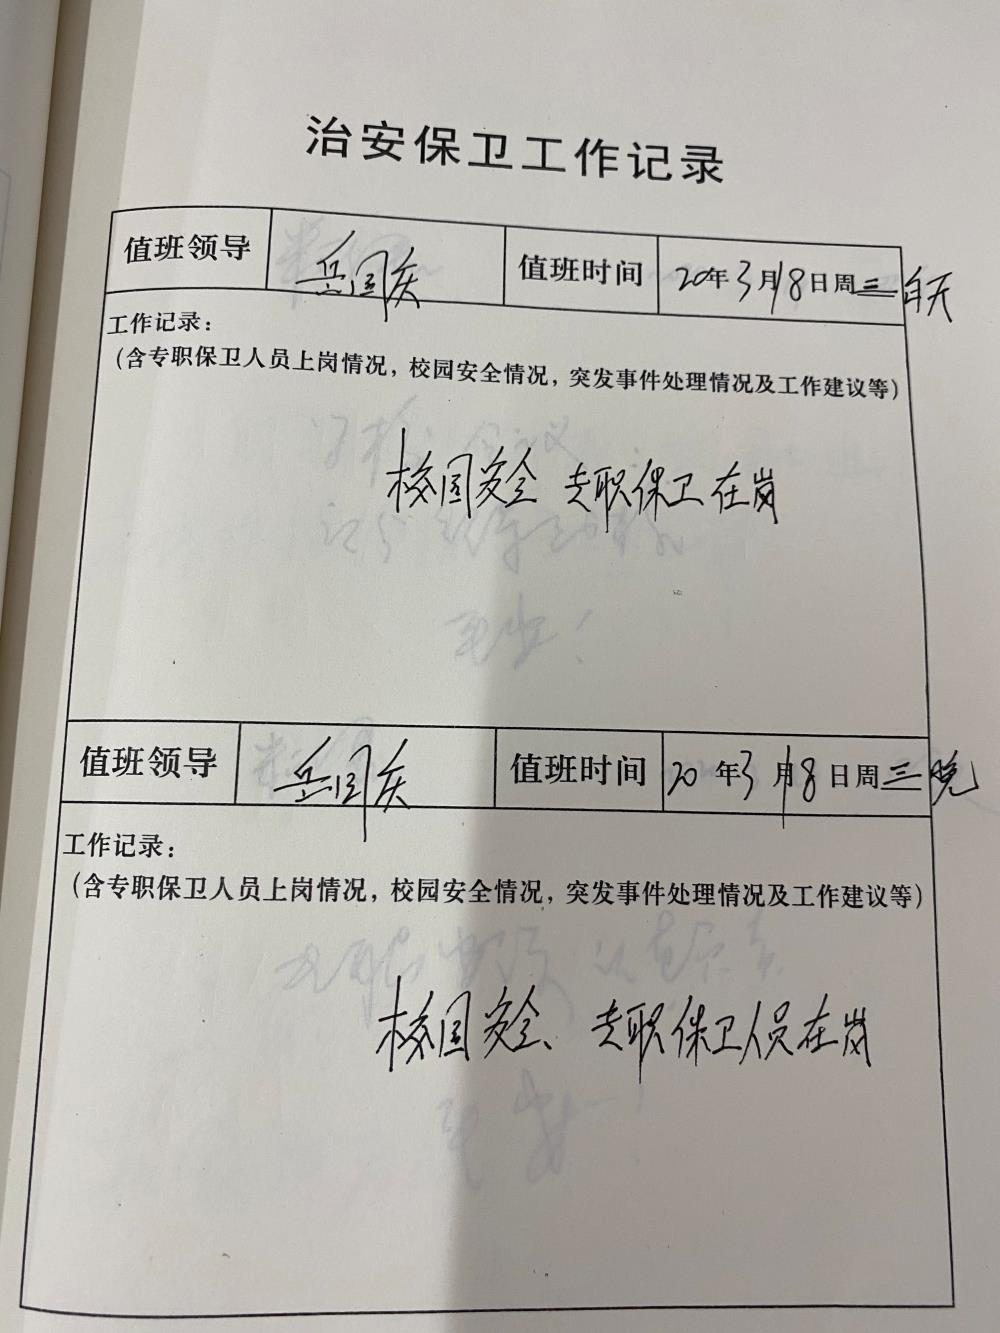 治安保卫工作记录
值班领导 岳国庆 值班时间 20年3月18日周三白天
工作记录：
（含专职保卫人员上岗情况，校园安全情况，突发事件处理情况及工作建议等）
校园安全 专职保卫在岗
值班领导 岳国庆 值班时间 20年3月18日周三晚
工作记录：
（含专职保卫人员上岗情况，校园安全情况，突发事件处理情况及工作建议等）
校园安全、专职保卫人员在岗